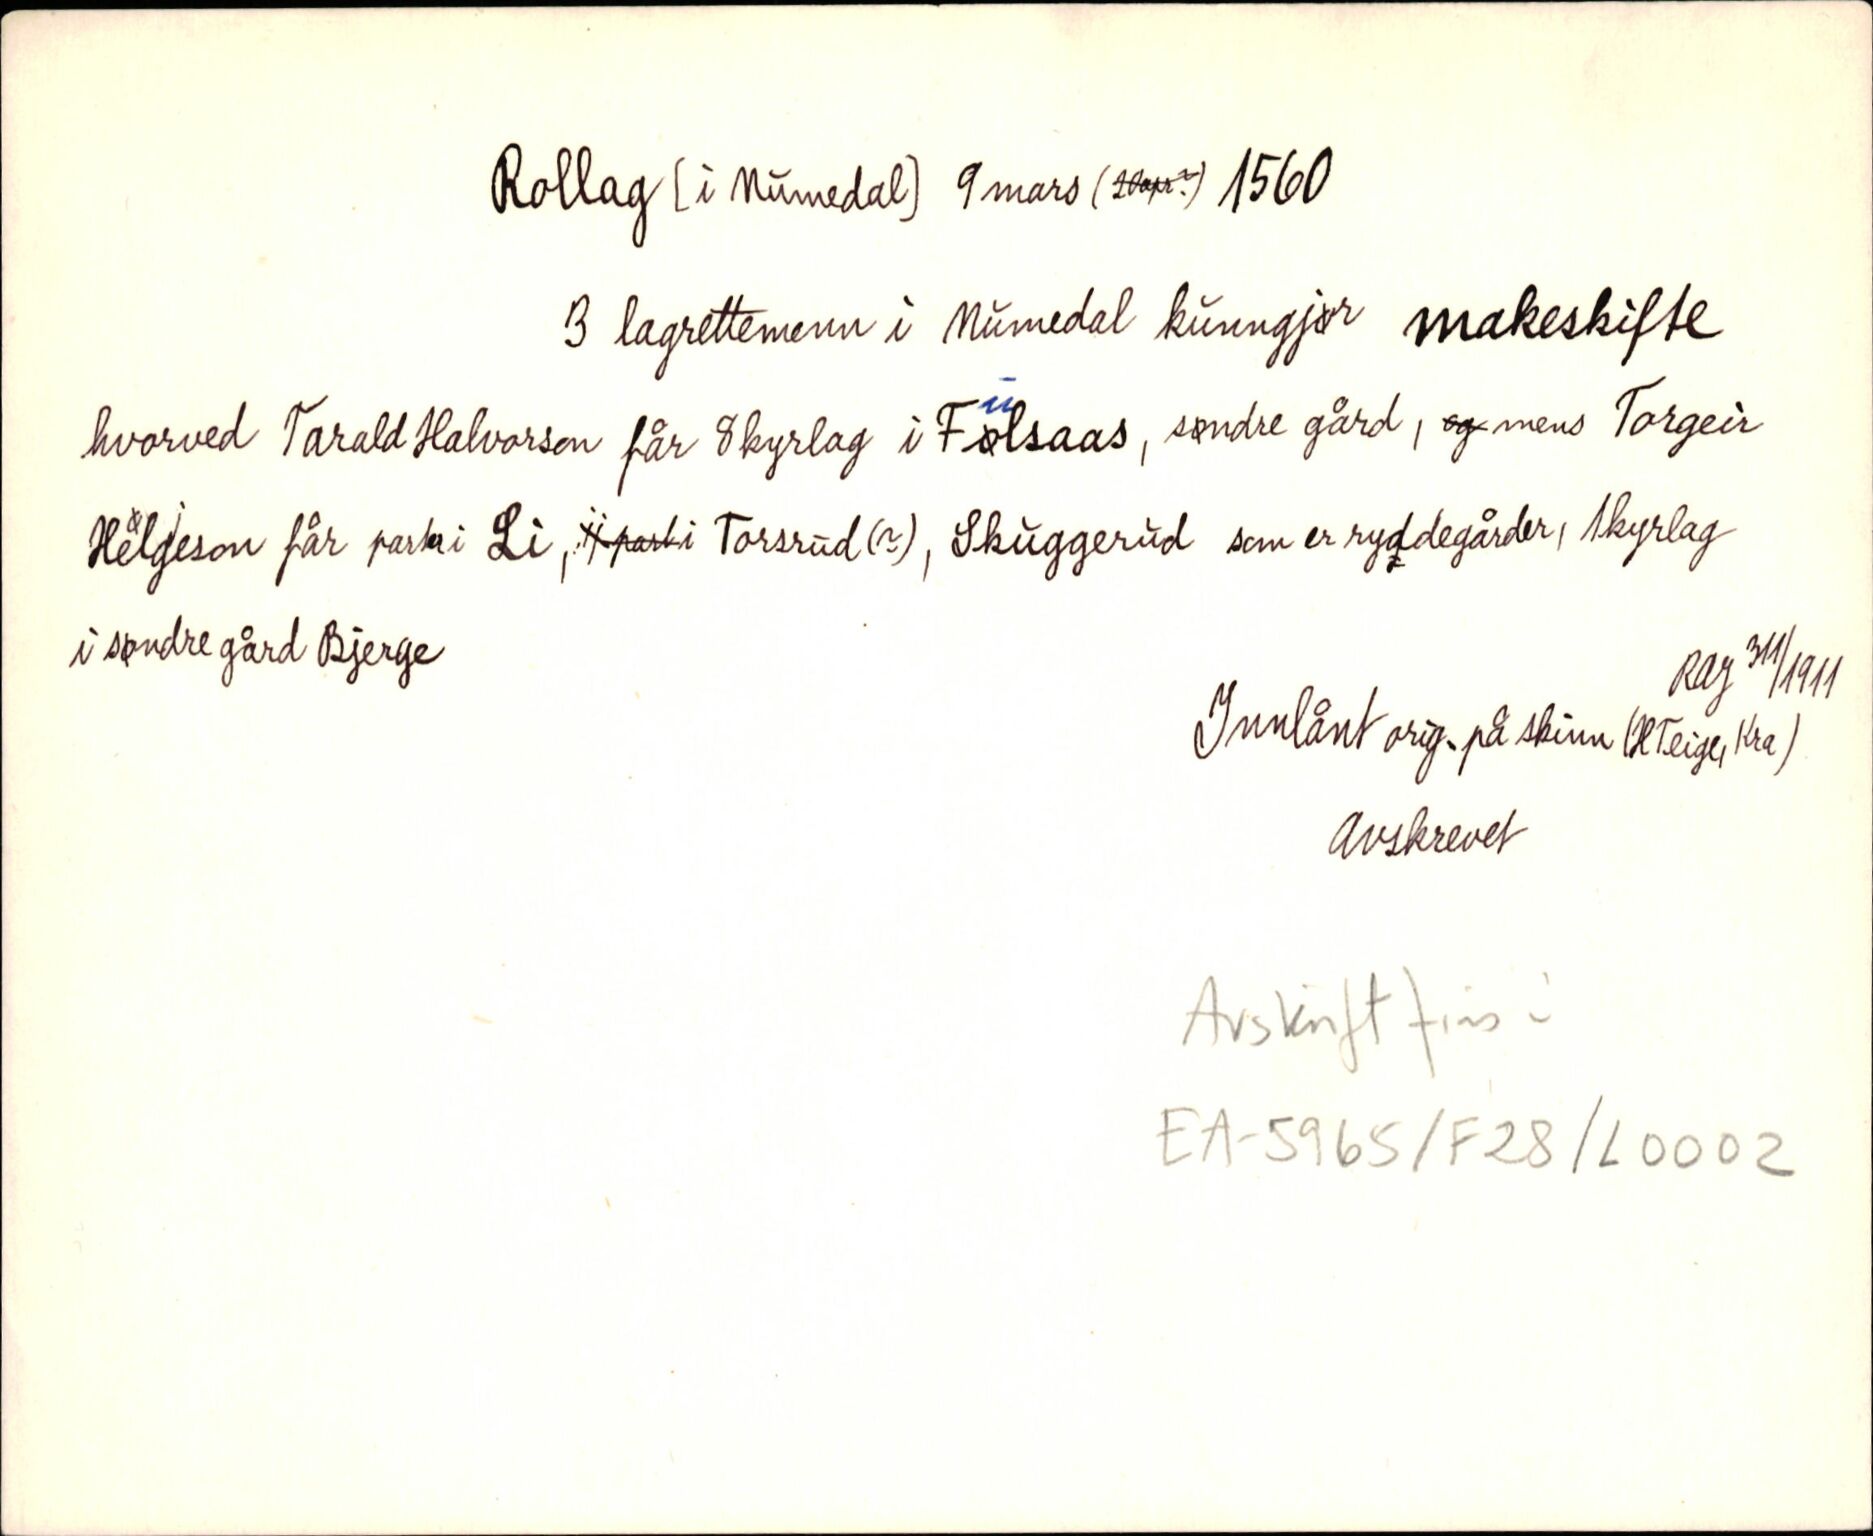 Rollag [i Numedal] 9 mars (20 apr?) 1560
3 lagrettemenn i Numedal kunngjør makeskifte
hvorved Tarald Halvorson får 8 kyrlag i Fulsaas, søndre gård, og mens Torgeir
Helgeson får parter i Li, part i Torsrud (?), Skuggerud som er ryddegårder, 1 kyrlag
i søndre gård Bjerge
RAJ 311/1911
Innlånt orig. på skinn (H Teige, Kra)
Avskrevet
Avskrift fins i
EA-5965/F28/L0002